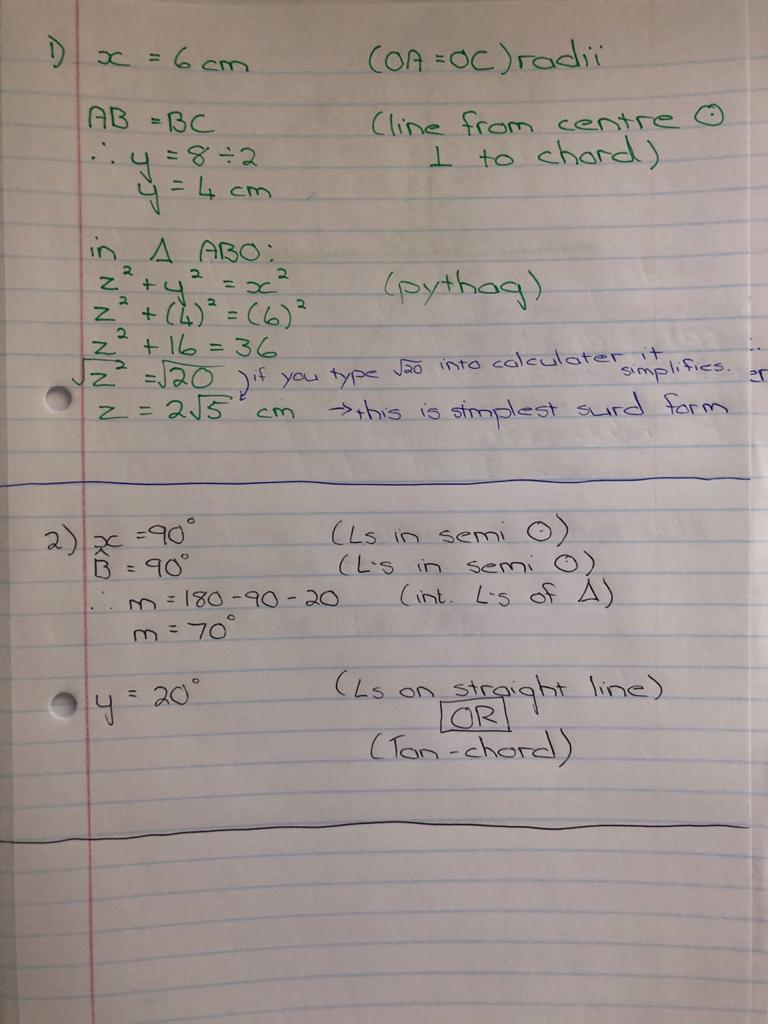 1) x = 6 cm (OA = OC) radii
AB = BC (line from centre ⊙
∴ y = 8 ÷ 2 ⊥ to chord)
y = 4 cm
in Δ ABO:
z² + y² = x² (pythag)
z² + (4)² = (6)²
z² + 16 = 36
√z² = √20 ) if you type √20 into calculater it simplifies.
z = 2√5 cm → this is simplest surd form
2) x = 90° (Ls in semi ⊙)
B̂ = 90° (L's in semi ⊙)
∴ m = 180 - 90 - 20 (int. L's of Δ)
m = 70°
y = 20° (Ls on straight line)
OR
(Tan-chord)